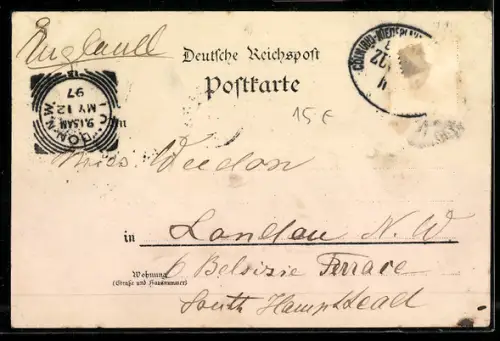 England
Deutsche Reichspost
Postkarte
LONDON.N.W.
9.15AM
MY 12
97
15 €
Miss Weedon
in London N.W.
Wohnung
(Straße und Hausnummer)
6 Belsizie Terrace
South Hampstead